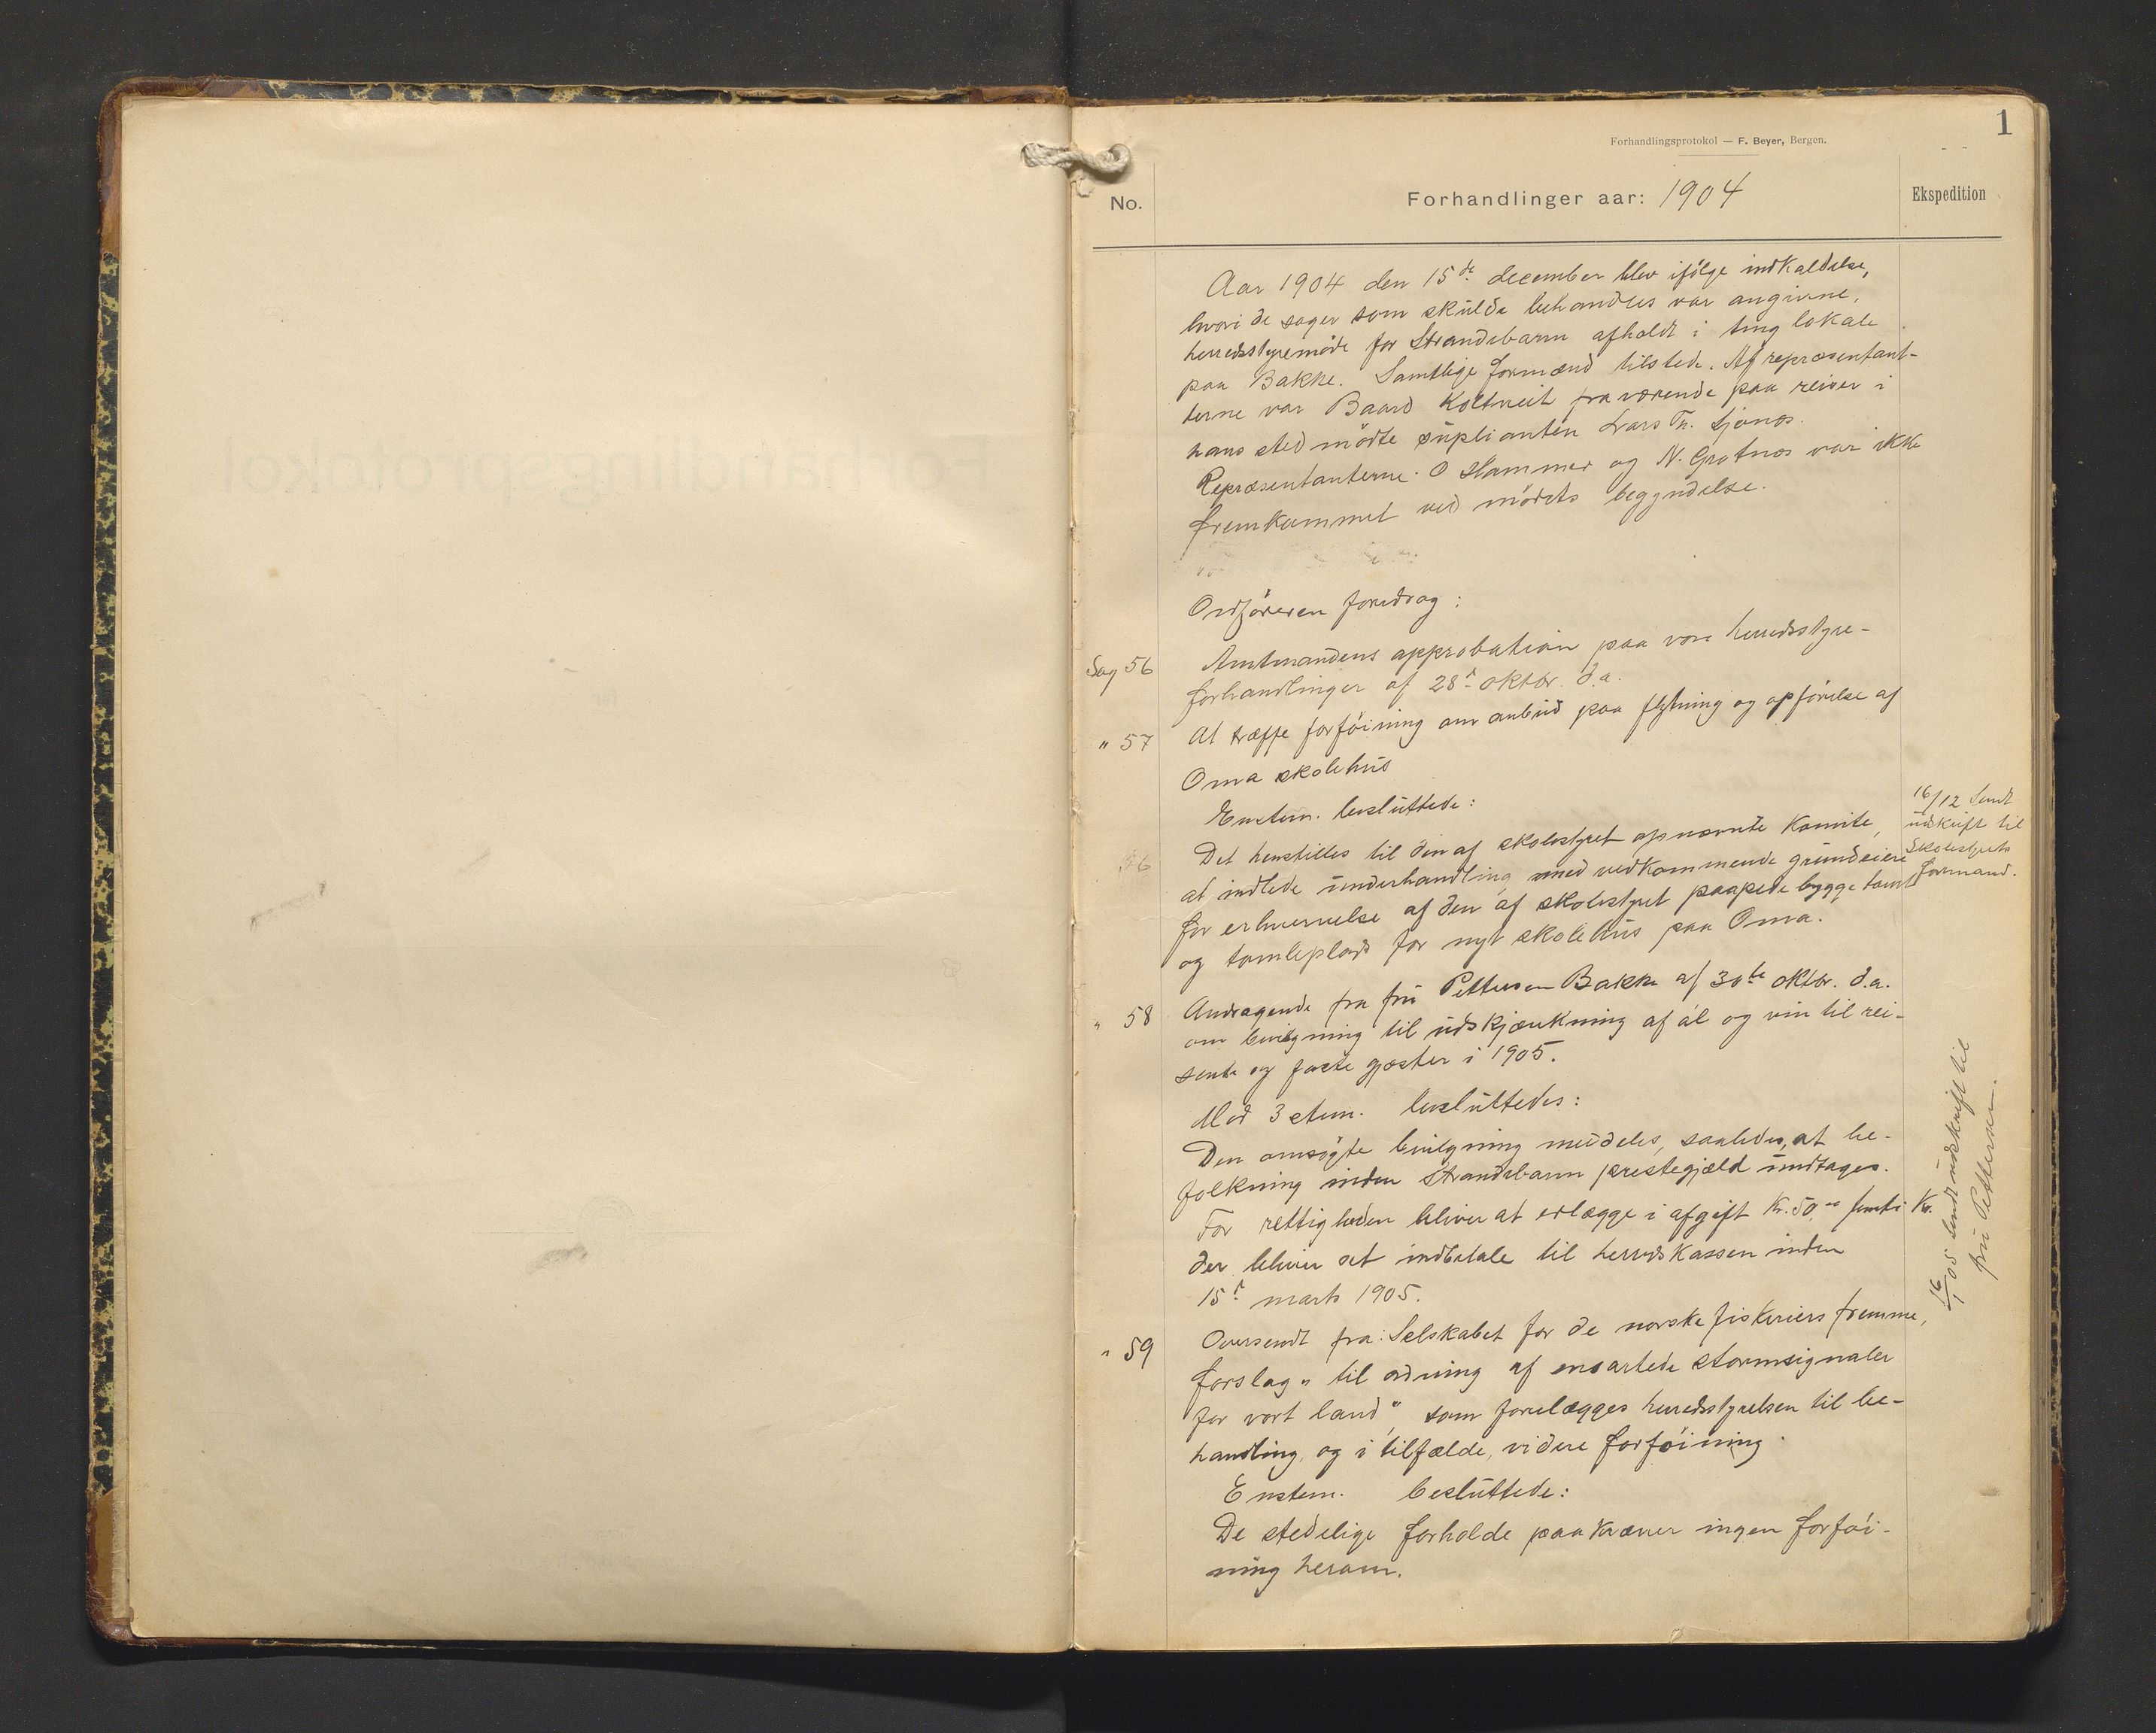 1
Forhandlingsprotokol — F. Beyer, Bergen.
No.
Forhandlinger aar: 1904
Ekspedition
Aar 1904 den 15de december blev ifölge indkaldelse,
hvori de sager som skulde behandles var angivne,
herredsstyremöde for Strandebarm afholdt i ting lokale
paa Bakke. Samtlige formænd tilstede. Af repræsentant-
terne var Baard Koltveit fraværende paa reiser i
hans sted mödte suplianten Lars Th. Ljonæs.
Repræsentanterne O Hammer og N. Grotnæs var ikke
fremkommet ved mödets begyndelse.
Ordföreren foredrog:
Sag 56
Amtmandens approbation paa vore herredsstyre-
forhandlinger af 28de oktbr. d.a.
" 57
At træffe forföining om anbud paa flytning og opförelse af
Oma skolehus
Enstem. besluttede:
56
Det henstilles til den af skolestyret opnævnte komite,
at indlede underhandling med vedkommende grundeiere
for erhvervelse af den af skolestyret paapede byggetomt
og tomteplads for nyt skolehus paa Oma.
16/12 Sendt
udskrift til
Skolestyrets
formand.
" 58
Andragende fra fru Pettersen Bakke af 30te oktbr. d.a.
om bevilgning til udskjænkning af öl og vin til rei-
sende og faste gjæster i 1905.
Mod 3 stem. besluttedes:
Den omsögte bevilgning meddeles, saaledes, at be-
folkning inden Strandebarm præstegjæld undtages.
For rettigheden bliver at erlægge i afgift Kr. 50,00 femti Kr.
der bliver at indbetale til herredskassen inden
15de marts 1905.
16/1 05 Sendt udskrift til
fru Pettersen.
" 59
Oversendt fra: Selskabet for de norske fiskeriers fremme,
forslag „ til ordning af ensartede stormsignaler
for vort land", som forelægges herredsstyrelsen til be-
handling, og i tilfælde, videre forföining.
Enstem. besluttede:
De stedelige forholde paakræver ingen forföi-
ning herom.